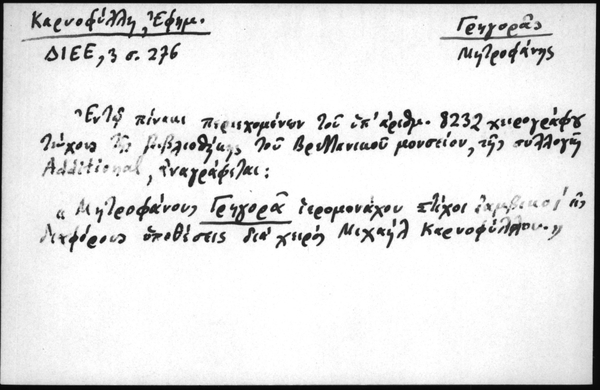 Καρνοφύλλη, Ἐφημ.
Γρηγορᾶς
ΔΙΕΕ, 3 σ. 276
Μητροφάνης
Ἐν τῷ πίνακι περιεχομένων τοῦ ὑπ' ἀριθμ. 8232 χειρογράφου
τεύχους τῆς βιβλιοθήκης τοῦ Βρεττανικοῦ μουσείου, τῆς συλλογῆς
Additional, ἀναγράφεται:
« Μητροφάνους Γρηγορᾶ ἱερομονάχου στίχοι ἰαμβικοὶ εἰς
διαφόρους ὑποθέσεις διὰ χειρὸς Μιχαὴλ Καρνοφύλλου. »